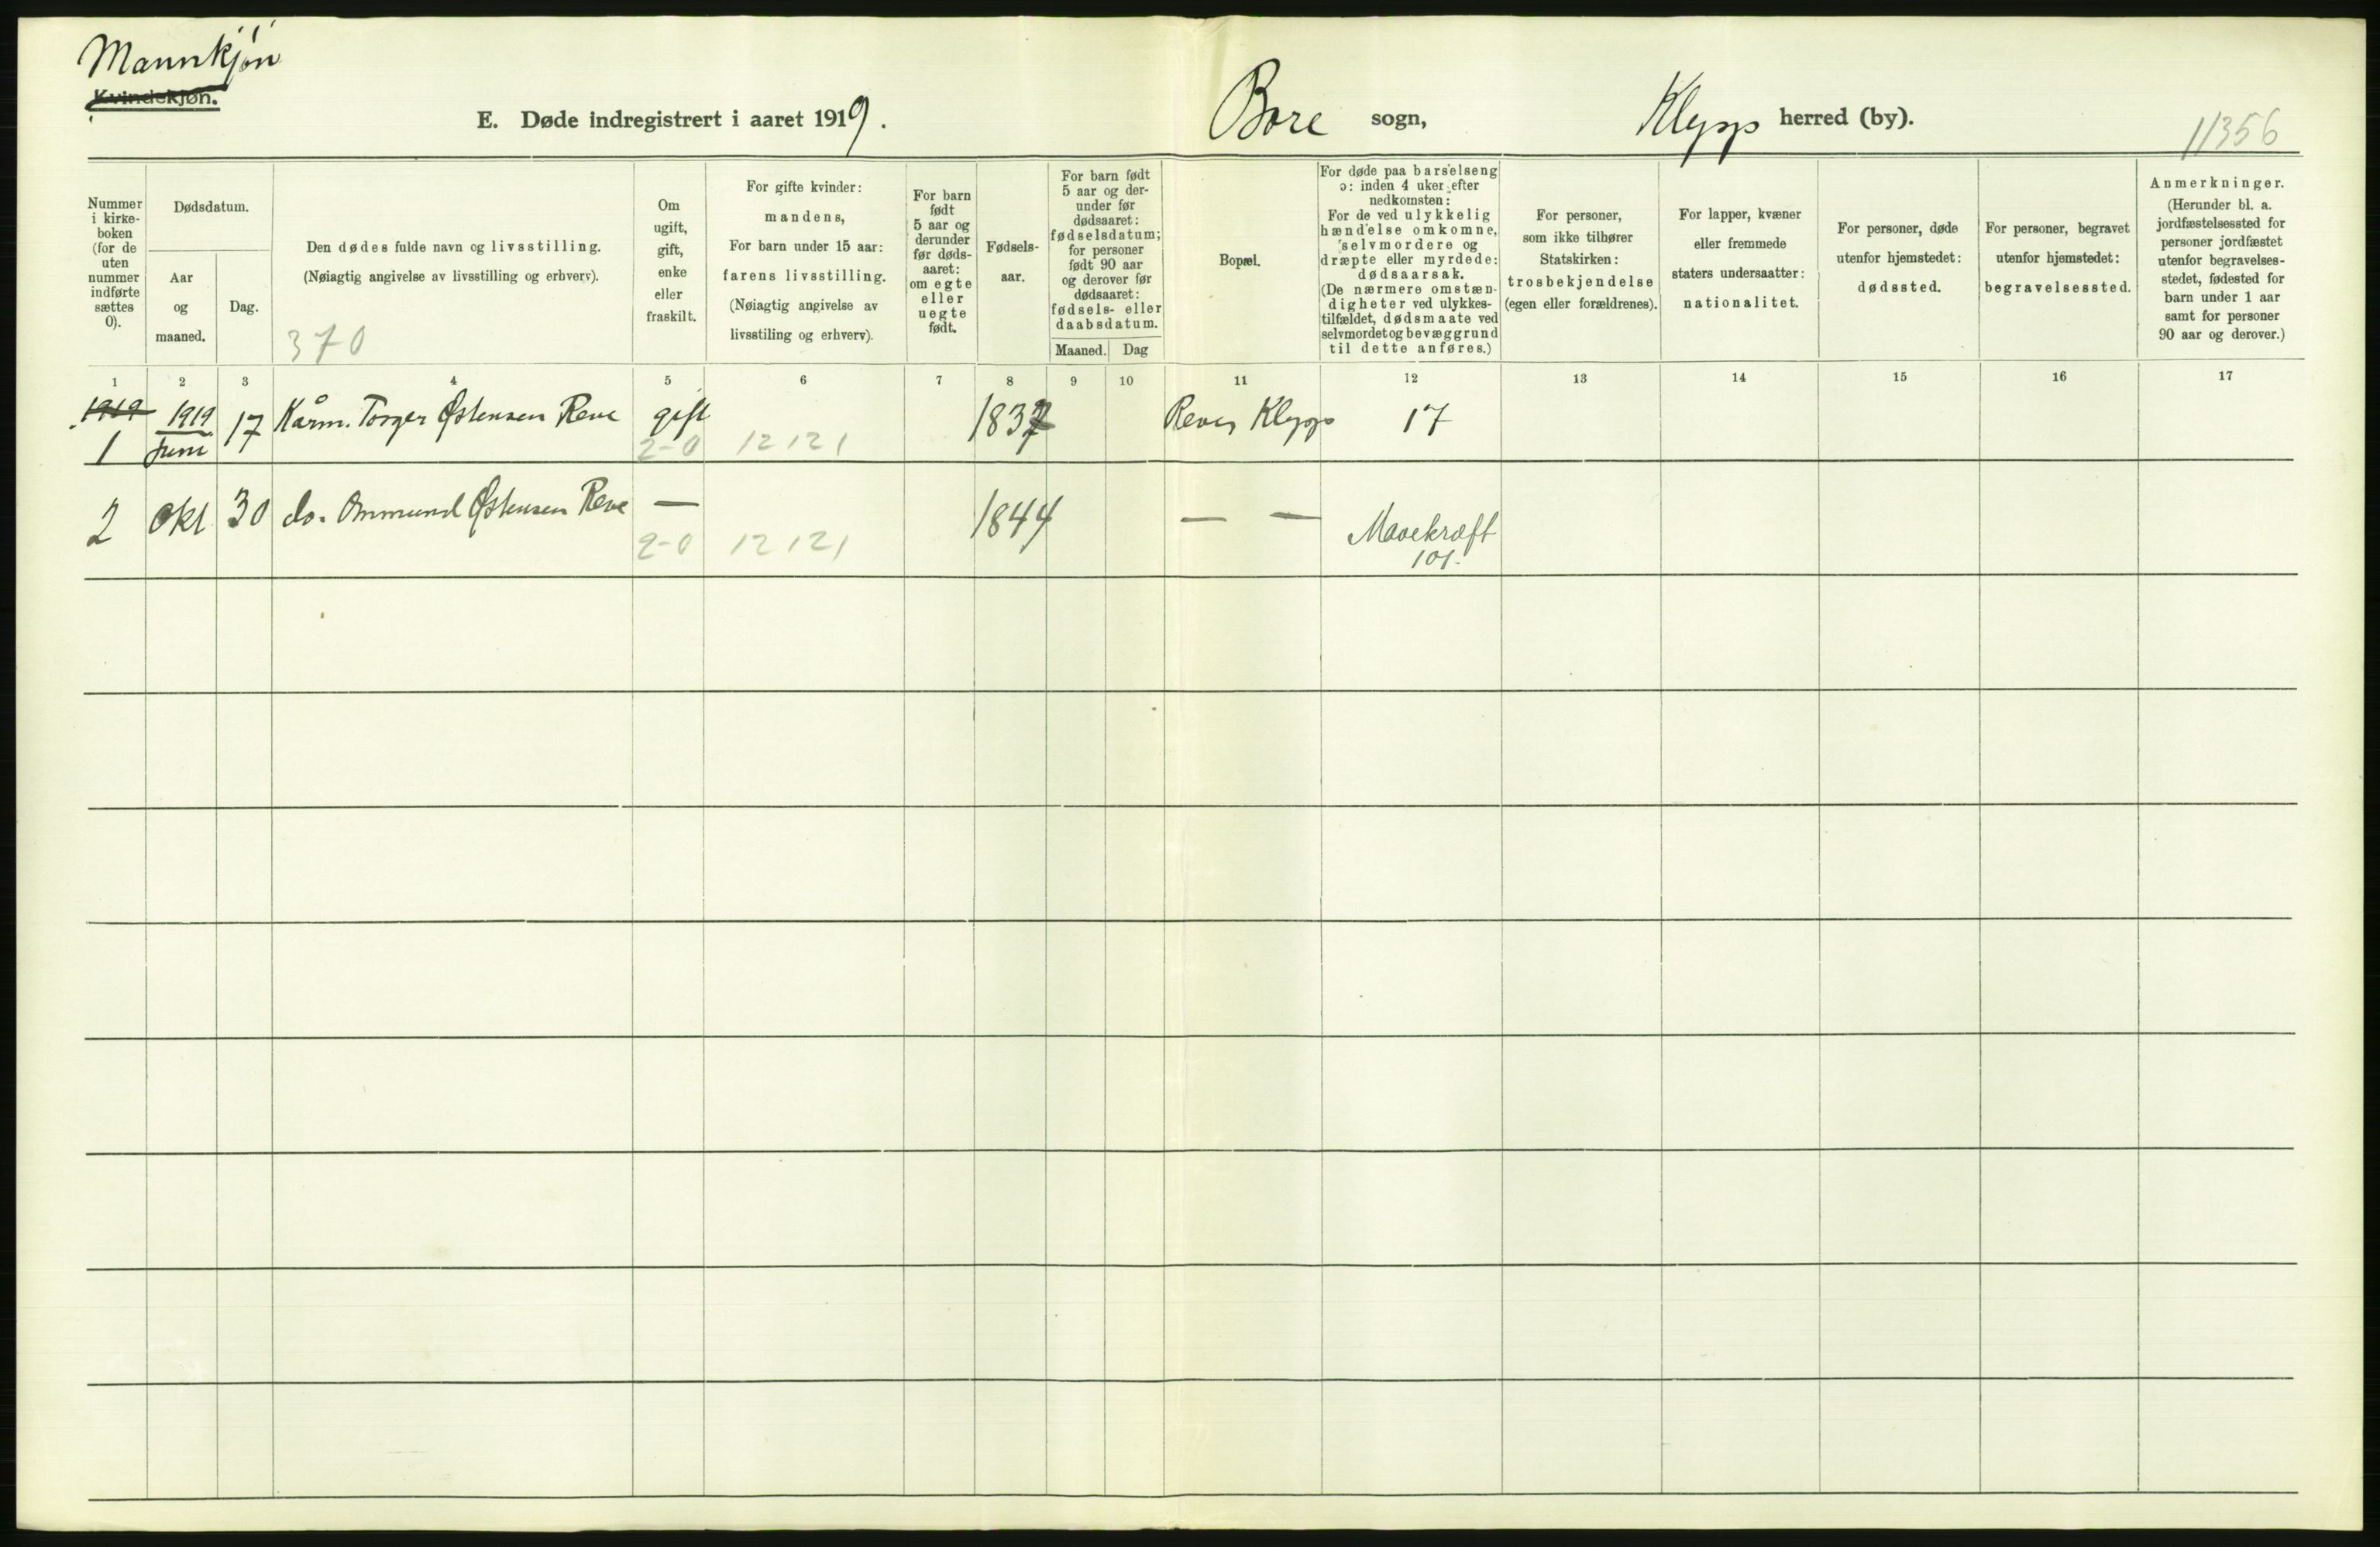 Mannkjøn
Kvindekjøn.
E. Døde indregistrert i aaret 1919.
Bore sogn,
Klepp herred (by).
11356
Nummer i kirke-boken (for de uten nummer indførte sættes 0).
Dødsdatum.
Aar og maaned.
Dag.
Den dødes fulde navn og livsstilling.
(Nøiagtig angivelse av livsstilling og erhverv).
370
Om ugift, gift, enke eller fraskilt.
For gifte kvinder:
mandens,
For barn under 15 aar:
farens livsstilling.
(Nøiagtig angivelse av
livsstiling og erhverv).
For barn født 5 aar og derunder før døds-aaret: om egte eller uegte født.
Fødsels-aar.
For barn født 5 aar og der-under før dødsaaret: fødselsdatum; for personer født 90 aar og derover før dødsaaret: fødsels- eller daabsdatum.
Maaned.
Dag
Bopæl.
For døde paa barselseng
ɔ: inden 4 uker efter
nedkomsten:
For de ved ulykkelig
hændelse omkomne,
selvmordere og
dræpte eller myrdede:
dødsaarsak.
(De nærmere omstæn-
digheter ved ulykkes-
tilfældet, dødsmaate ved
selvmordet og bevæggrund
til dette anføres.)
For personer,
som ikke tilhører
Statskirken:
trosbekjendelse
(egen eller forældrenes).
For lapper, kvæner
eller fremmede
staters undersaatter:
nationalitet.
For personer, døde
utenfor hjemstedet:
dødssted.
For personer, begravet
utenfor hjemstedet:
begravelsessted.
Anmerkninger.
(Herunder bl. a.
jordfæstelsessted for
personer jordfæstet
utenfor begravelses-
stedet, fødested for
barn under 1 aar
samt for personer
90 aar og derover.)
1 2 3 4 5 6 7 8 9 10 11 12 13 14 15 16 17
1919
1 1919 Juni 17 Kårm. Torger Østensen Reve gift 1837 Reve, Klepp 17
2-0 12121
2 Okt 30 do. Ommund Østensen Reve — 1844 — — Mavekræft
2-0 12121 101.